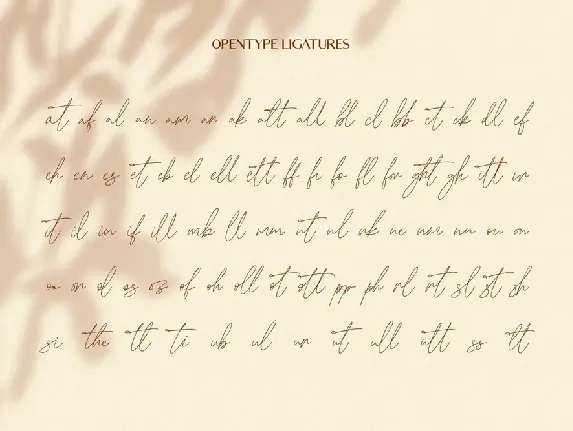 OPENTYPE LIGATURES
at af al an am ar ak att all bl cl bb ct ck dl ef
ch en es et eb el ell ett ff fr fo fl for ght gh itt ir
it il in if ill mb ll mm nt nl nk ne nm nn on
on ol os of oh oll ot ott pp ph rl rt sl st sh
si the tl ti ub ul un ut ull utt ss tt